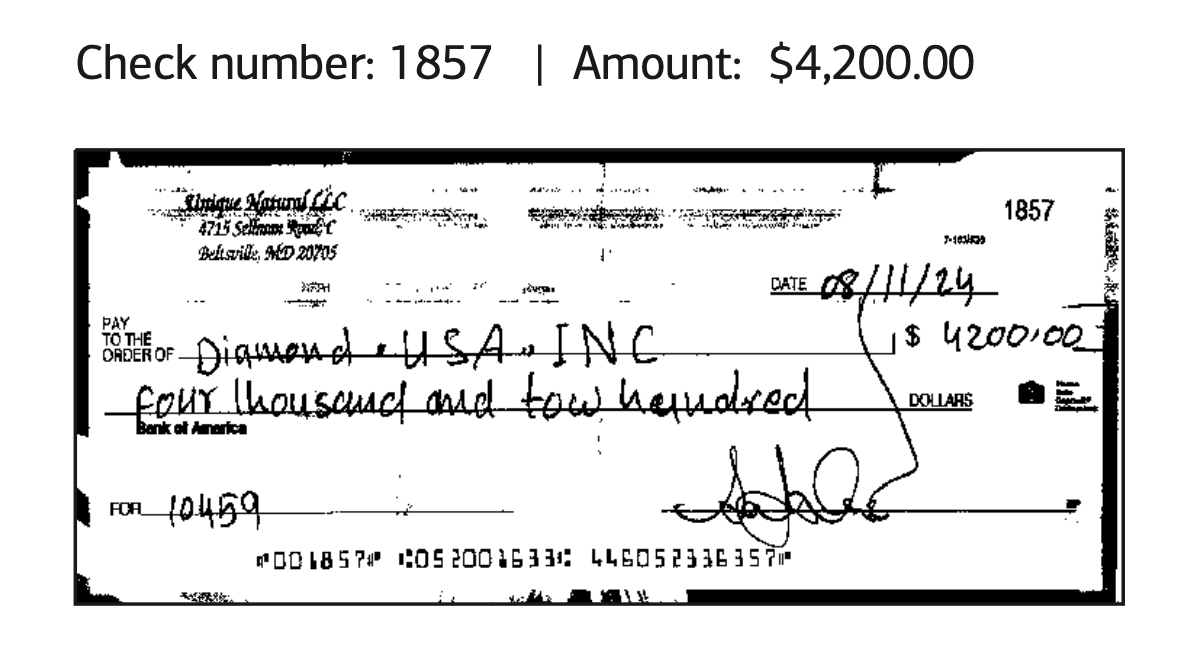 Check number: 1857 | Amount: $4,200.00
Unique Natural LLC
1857
4715 Sellman Road, C
Beltsville, MD 20705
DATE 08/11/24
PAY TO THE ORDER OF Diamond · USA · INC $ 4200.00
four thousand and tow hundred DOLLARS
Bank of America
FOR 10459
⑈001857⑈ ⑆052001633⑆ 446052336357⑈